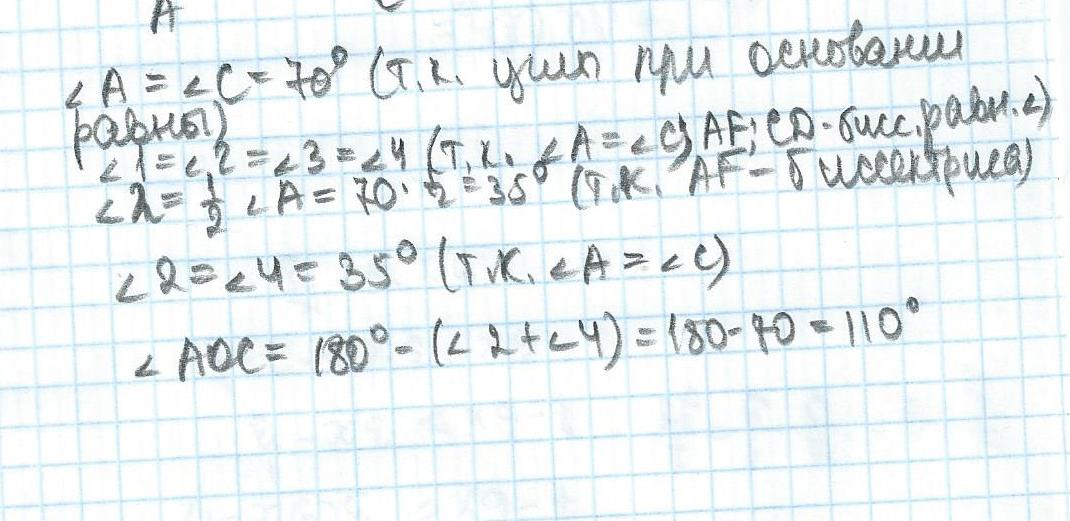 A
∠A = ∠C = 70° (т.к. углы при основании
равны)
∠1 = ∠2 = ∠3 = ∠4 (т.к. ∠A = ∠C, AF; CD - бисс. равн. ∠)
∠2 = 1/2 ∠A = 70 · 1/2 = 35° (т.к. AF - биссектриса)
∠2 = ∠4 = 35° (т.к. ∠A = ∠C)
∠AOC = 180° - (∠2 + ∠4) = 180 - 70 = 110°